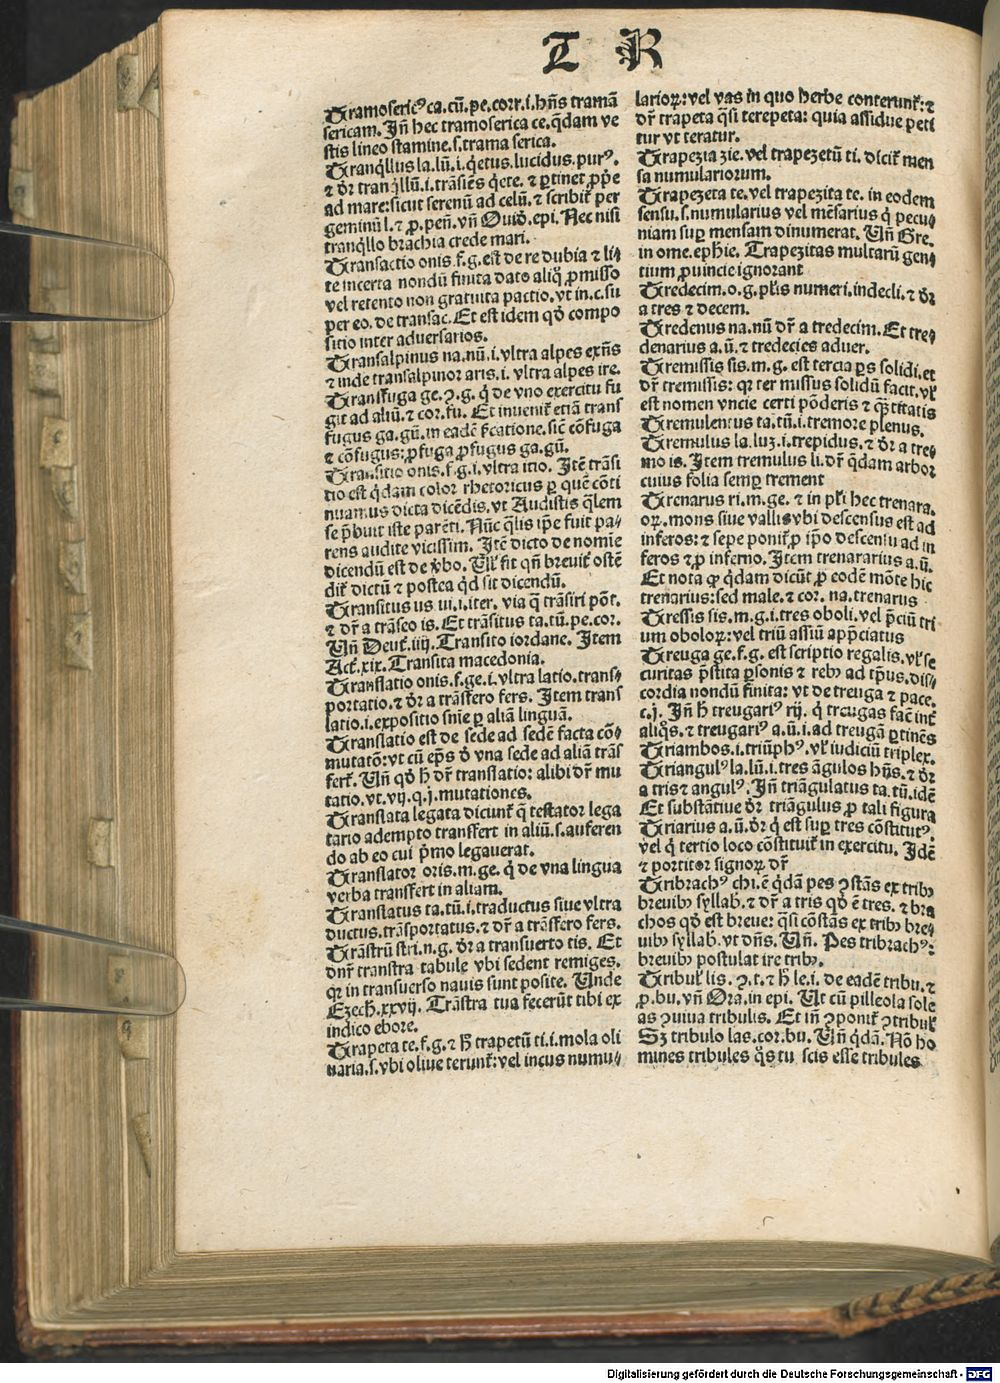 T R
Tramosericꝰ ca.cū.pe.corr.i.hn̄s tramā
sericam. Jn̄ hec tramoserica ce.q̄dam ve
stis lineo stamine.s.trama serica.
Tranq̇llus la.lū.i.q̇etus.lucidus.purꝰ.
⁊ dr̄ tranq̇llū.i.trāsiēs q̇ete.⁊ ꝑtinet ꝓp̄e
ad mare:sicut serenū ad celū.⁊ scribit̄ per
geminū l.⁊ ꝓ.pen̄.vn̄ Ouid̄.epi. Nec nisi
tranq̇llo brachia crede mari.
Transactio onis.f.g.est de re dubia ⁊ li⸗
te incerta nondū finita dato aliq̇ ꝓmisso
vel retento non gratuita pactio.vt in.c.su
per eo. de transac. Et est idem qd̄ compo
sitio inter aduersarios.
Transalpinus na.nū.i.vltra alpes exn̄s
⁊ inde transalpinor aris.i.vltra alpes ire.
Transfuga ge.ꝯ.g. q̇ de vno exercitu fu
git ad aliū.⁊ cor.fu. Et inuenit̄ etiā trans
fugus ga.gū.in eadē s̄catione.sic̄ cōfuga
⁊ cōfugus:ꝓfuga ꝓfugus ga.gū.
Transitio onis.f.g.i.vltra itio. Jtē trāsi
tio est q̇dam color rhetoricus ꝑ quē cōti
nuamus dicta dicēdis.vt Audistis q̄lem
se p̄buit iste parēti. Nūc q̄lis ip̄e fuit pa⸗
rens audite vicissim. Jtē dicto de nomīe
dicendū est de v̄bo. Vl̄ fit qn̄ breuit̄ ostē
dit̄ dictū ⁊ postea qd̄ sit dicendū.
Transitus us ui.i.iter. via q̄ trāsiri pōt.
⁊ dr̄ a trāseo is. Et trāsitus ta.tū.pe.cor.
Vn̄ Deut̄.iiij. Transito iordane. Jtem
Act̄.xix. Transita macedonia.
Translatio onis.f.ge.i.vltra latio.trans⸗
portatio.⁊ dr̄ a trāsfero fers. Jtem trans
latio.i.expositio sn̄ie ꝑ aliā linguā.
Translatio est de sede ad sedē facta cō⸗
mutatō:vt cū ep̄s d̄ vna sede ad aliā trās
fert̄. Vn̄ qd̄ h̄ dr̄ translatio: alibi dr̄ mu
tatio.vt.vij.q.j.mutationes.
Translata legata dicunt̄ q̄ testator lega
tario adempto transfert in aliū.s.auferen
do ab eo cui p̄mo legauerat.
Translator oris.m.ge. q̇ de vna lingua
verba transfert in aliam.
Translatus ta.tū.i.traductus siue vltra
ductus.trāsportatus.⁊ dr̄ a trāsfero fers.
Trāstrū stri.n.g. dr̄ a transuerto tis. Et
dnr̄ transtra tabule vbi sedent remiges.
qr̄ in transuerso nauis sunt posite. Vnde
Ezech̄.xxvij. Trāstra tua fecerūt tibi ex
indico ebore.
Trapeta te.f.g.⁊ h̄ trapetū ti.i.mola oli
uaria.s.vbi oliue terunt̄:vel incus numu⸗
larioꝝ:vel vas in quo herbe conterunt̄:⁊
dr̄ trapeta q̄si terepeta: quia assidue peti
tur vt teratur.
Trapezia zie. vel trapezetū ti. dicit̄ men
sa numulariorum.
Trapezeta te.vel trapezita te. in eodem
sensu.s.numularius vel mēsarius q̇ pecu⸗
niam suꝑ mensam dinumerat. Vn̄ Gre.
in ome.eph̄ie. Trapezitas multarū gen⸗
tium ꝓuincie ignorant
Tredecim.o.g.pl̄is numeri.indecli.⁊ dr̄
a tres ⁊ decem.
Tredenus na.nū dr̄ a tredecim. Et tre⸗
denarius a.ū.⁊ tredecies aduer.
Tremissis sis.m.g. est tercia ꝑs solidi.et
dr̄ tremissis: qr̄ ter missus solidū facit.vl̄
est nomen vncie certi pōderis ⁊ q̄ntitatis
Tremulentus ta.tū.i.tremore plenus.
Tremulus la.luz.i.trepidus.⁊ dr̄ a tre⸗
mo is. Jtem tremulus li.dr̄ q̄dam arbor
cuius folia semꝑ trement
Trenarus ri.m.ge. ⁊ in pl̄i hec trenara.
oꝝ.mons siue vallis vbi descensus est ad
inferos:⁊ sepe ponit̄ ꝓ ip̄o descensu ad in
feros ⁊ ꝓ inferno. Jtem trenararius a.ū.
Et nota ꝙ q̇dam dicūt ꝓ eodē mōte hic
trenarius:sed male.⁊ cor. na.trenarus
Tressis sis.m.g.i.tres oboli. vel p̄ciū tri
um oboloꝝ:vel triū assiū app̄ciatus
Treuga ge.f.g. est scriptio regalis.vl̄ se
curitas p̄stita ꝑsonis ⁊ rebꝰ ad tp̄us.dis⸗
cordia nondū finita: vt de treuga ⁊ pace.
c.j. Jn̄ h̄ treugariꝰ rij. q̇ treugas fac̄ int̄
aliq̊s.⁊ treugariꝰ a.ū.i.ad treugā ꝑtinēs
Triambos.i.triūphꝰ.vl̄ iudiciū triplex.
Triangulꝰ la.lū.i.tres āgulos hn̄s.⁊ dr̄
a tris ⁊ angulꝰ. Jn̄ triāgulatus ta.tū.idē
Et substātiue dr̄ triāgulus ꝓ tali figura
Triarius a.ū.dr̄ q̇ est suꝑ tres cōstitutꝰ.
vel q̇ tertio loco cōstituit̄ in exercitu. Jdē
⁊ portitor signoꝝ dr̄
Tribrachꝰ chi.ē q̇dā pes ꝯstās ex tribꝫ
breuibꝫ syllab̄.⁊ dr̄ a tris qd̄ ē tres.⁊ bra
chos qd̄ est breue: q̄si cōstās ex tribꝫ bre⸗
uibꝫ syllab̄.vt dn̄s. Vn̄. Pes tribrachꝰ:
breuibꝫ postulat ire tribꝫ.
Tribul̄ lis. ꝯ.t.⁊ h̄ le.i. de eadē tribu.⁊
ꝓ.bu.vn̄ Ora.in epi. Ut cū pilleola sole
as ꝯuiua tribulis. Et in̄ ꝯponit̄ ꝯtribul̄
Sꝫ tribulo las.cor.bu. Vn̄ q̇dā. Nō ho
mines tribules q̊s tu scis esse tribules
Digitalisierung gefördert durch die Deutsche Forschungsgemeinschaft - DFG